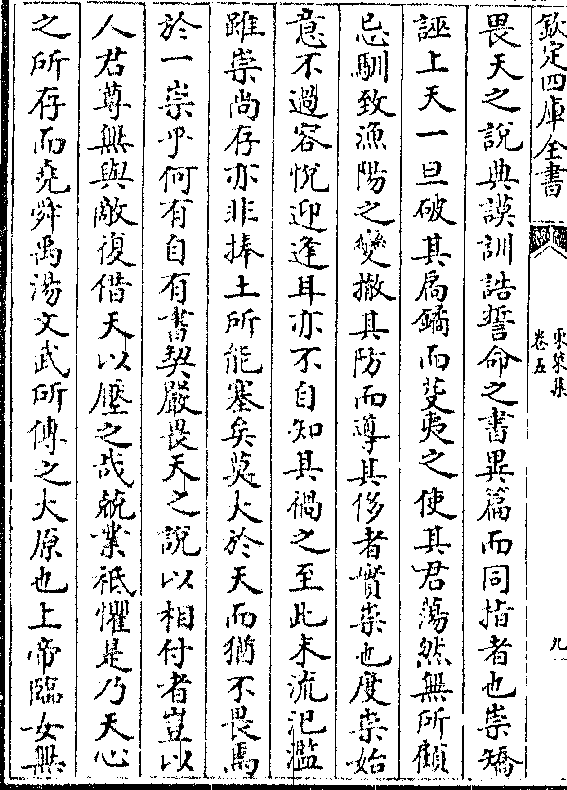 欽定四庫全書
東萊集
卷五
九
畏天之說典謨訓誥誓命之書異篇而同指者也崇矯
誣上天一旦破其扃鐍而芟夷之使其君蕩然無所顧
忌馴致漁陽之變撤其防而導其侈者實崇也度崇始
意不過容悅迎逢耳亦不自知其禍之至此末流汜濫
雖崇尚存亦非捧土所能塞矣莫大於天而猶不畏焉
於一崇乎何有自有書契嚴畏天之說以相付者豈以
人君尊無與敵復借天以壓之哉兢業祗懼是乃天心
之所存而堯舜禹湯文武所傳之大原也上帝臨女無